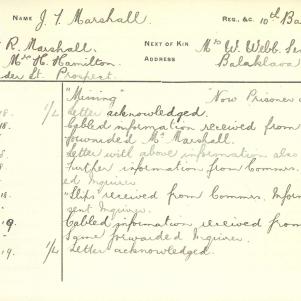 NAME J. T. Marshall. REG., &C. 10th Ba
R. Marshall. NEXT OF KIN Mrs W. Webb. Se
Mrs H. Hamilton. ADDRESS Balaklava
der St. Prospect.
"Missing" Now Prisoner
8. 1/4 Letter acknowledged.
18. Cabled information received from
forwarded Mr Marshall.
18. Letter with above information also
18. Further information from Commrs.
ed Inquirer
18. "Slips" received from Commrs. Inform
sent Inquirer
19. Cabled information received from
Same forwarded Inquirer.
19 1/4 Letter acknowledged.